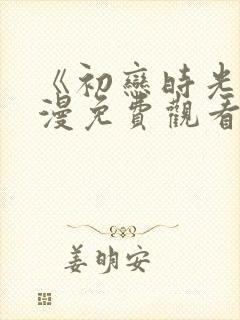 《初戀時光
漫免費觀看
姜明安